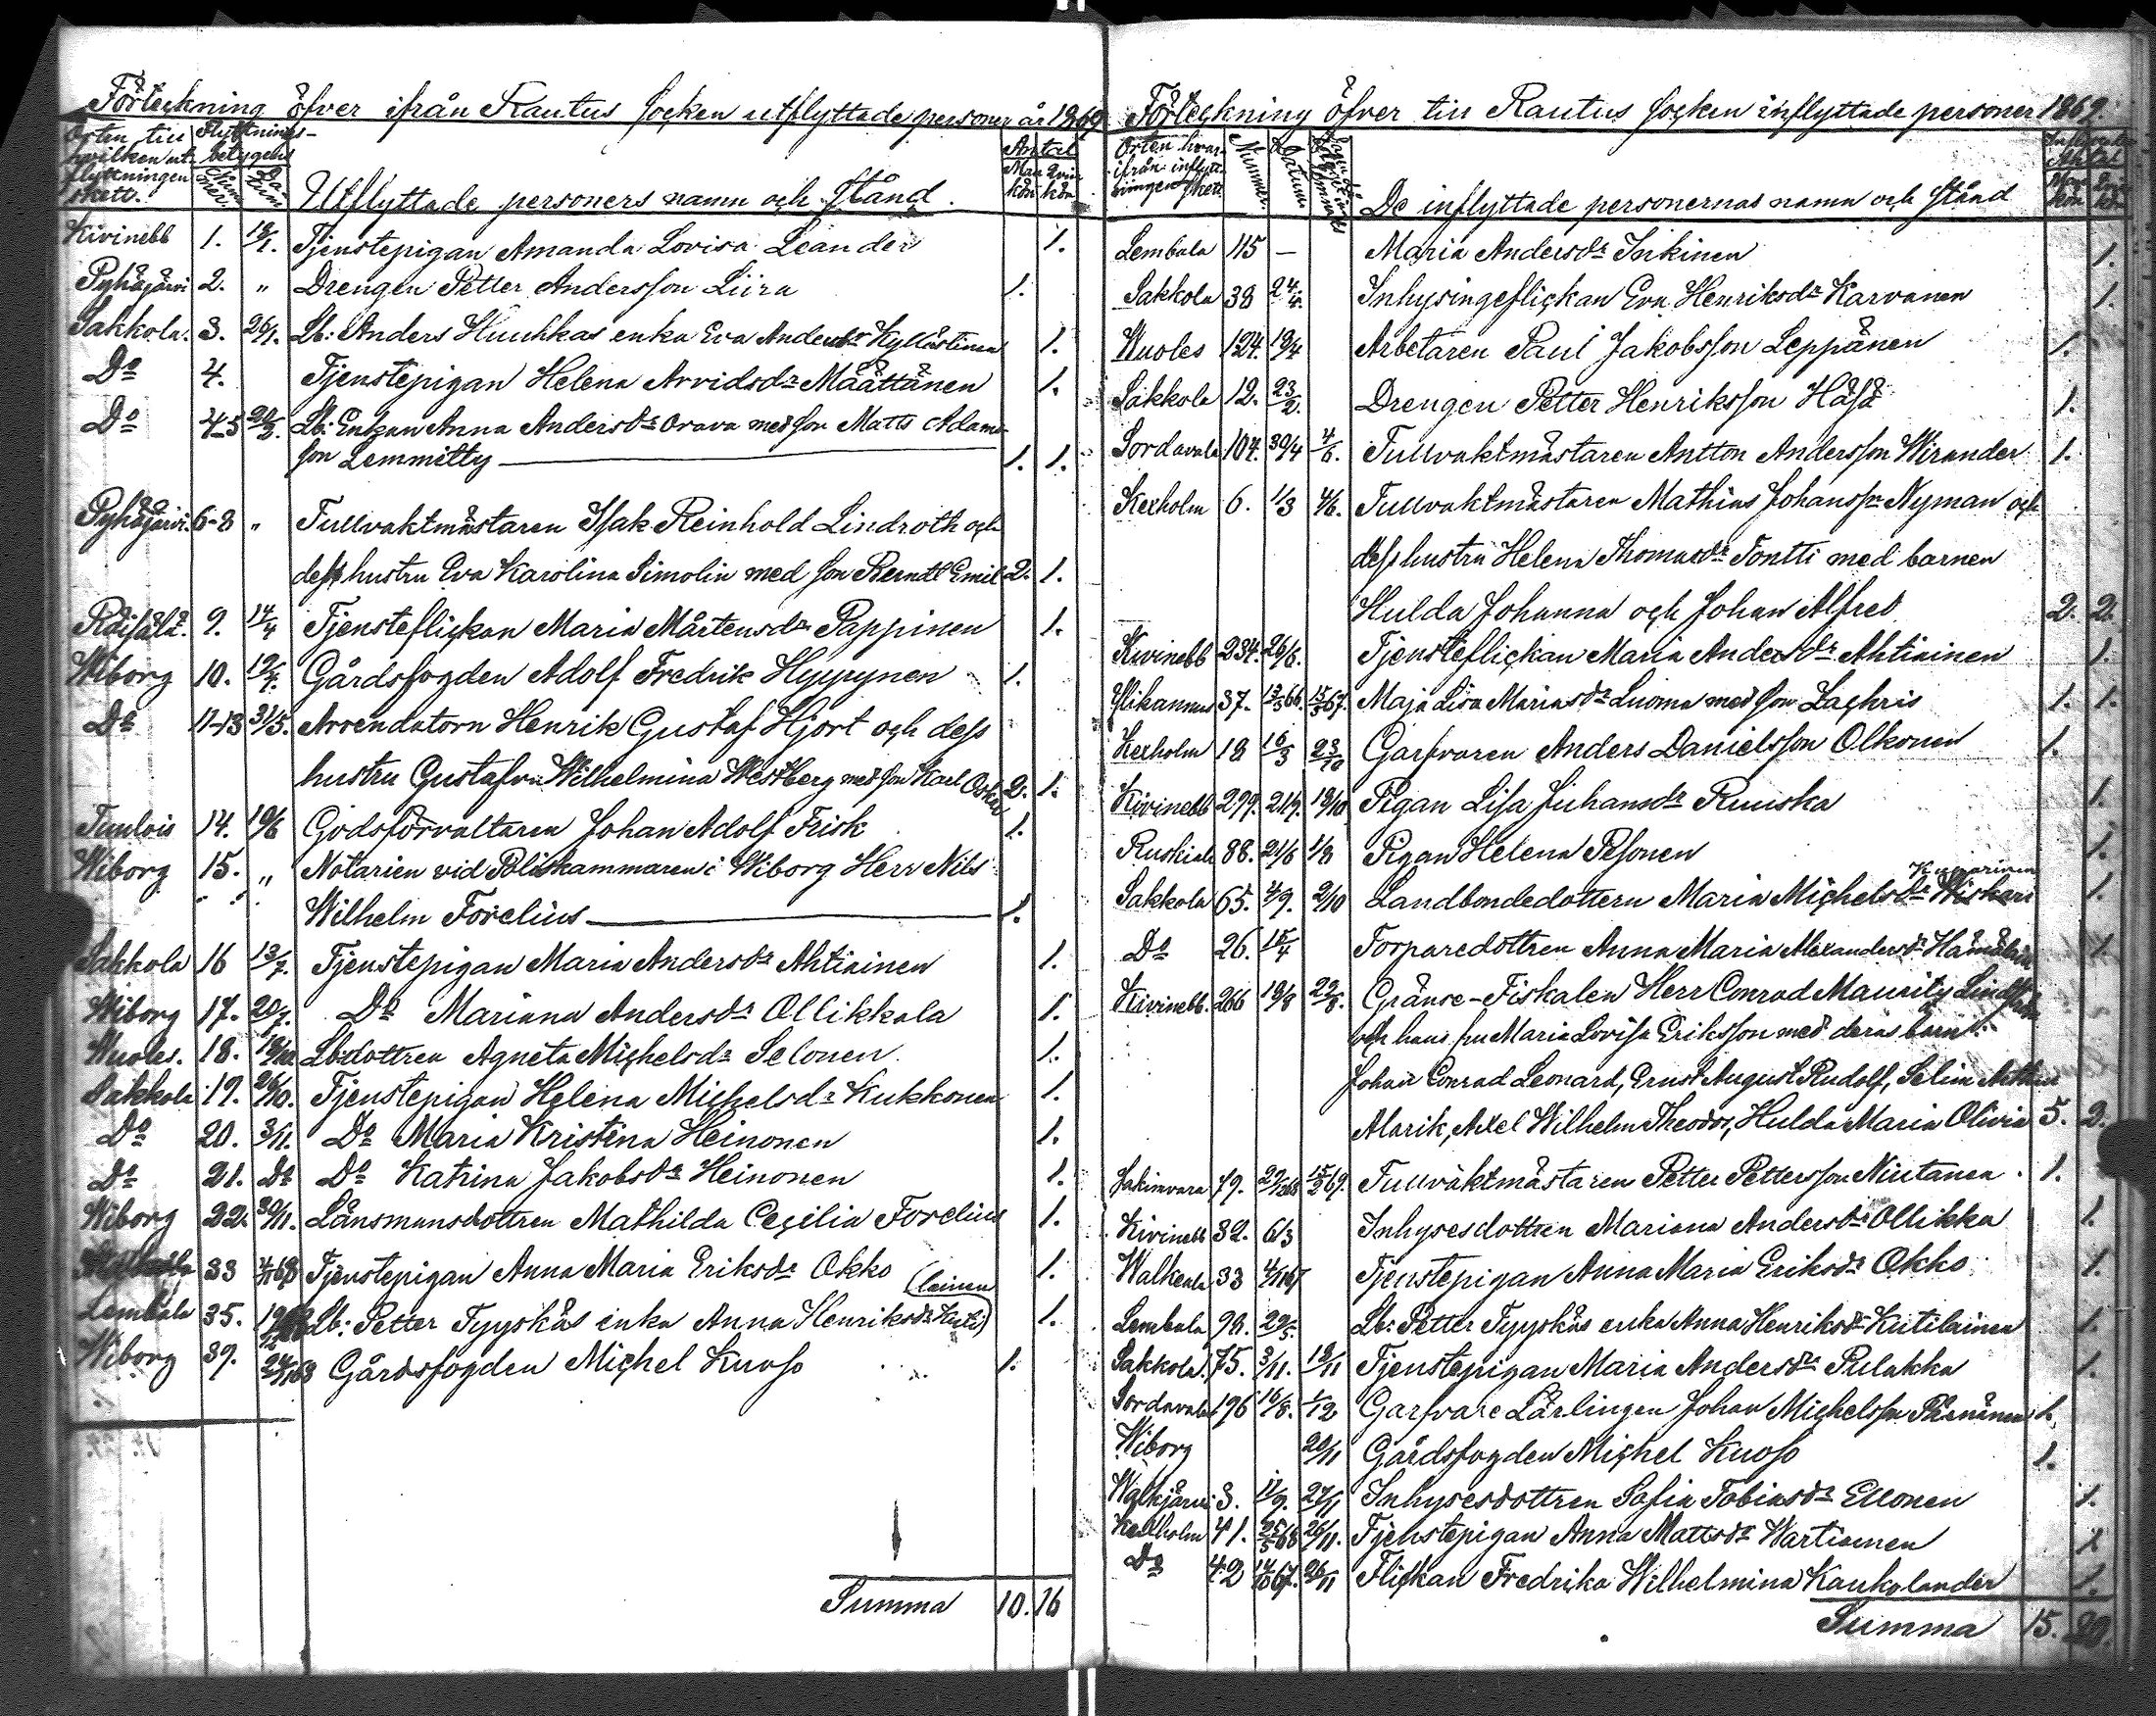 Förteckning öfver ifrån Rautus socken utflyttade personer år 1869
Orten till hvilken utflyttningen skett. Flyttnings-betygens Nummer Datum Utflyttade personers namn och stånd. Antal Mankön Qvinkön
Kivinebb 1. Tjenstepigan Amanda Lovisa Leander 1.
Pyhäjärvi 2. " Drengen Petter Andersson Liira 1.
Sakkola. 3. 26/1. Lb: Anders Huuhkas enka Eva Andersdr Kylliästinen 1.
Do 4. Tjenstepigan Helena Arvidsdr Määttänen 1.
Do 4-5 Lb: Enkan Anna Andersdr Orava med son Matts Adams-
son Lemmitty 1. 1.
Pyhäjärvi. 6-8 " Tullvaktmästaren Isak Reinhold Lindroth och
dess hustru Eva Karolina Simolin med son Berndt Emil 2. 1.
Räisälä. 9. 14/4 Tjensteflickan Maria Mårtensdr Pappinen 1.
Wiborg 10. Gårdsfogden Adolf Fredrik Hyppynen 1.
Do 11-13 31/5. Arrendatorn Henrik Gustaf Hjort och dess
hustru Gustafva Wilhelmina Westberg med son Karl Oskar 2. 1.
Tuulois 14. 19/6 Godsförvaltaren Johan Adolf Frisk 1.
Wiborg 15. " Notarien vid Poliskammaren i Wiborg Herr Nils
Wilhelm Forelius 1.
Sakkola 16 13/7. Tjenstepigan Maria Andersdr Ahtiainen 1.
Wiborg 17. 20/7. Do Mariana Andersdr Ollikkala 1.
Wuoles. 18. 19/10 Lb:dottren Agneta Michelsdr Selonen. 1.
Sakkola 19. 26/10. Tjenstepigan Helena Michelsdr Kukkonen 1.
Do 20. 3/11. Do Maria Kristina Heinonen 1.
Do 21. Do Do Katrina Jakobsdr Heinonen 1.
Wiborg 22. 30/11. Länsmansdottren Mathilda Cecilia Forelius 1.
33 Tjenstepigan Anna Maria Eriksdr Okko 1.
Lembala 35. Lb: Petter Tyyskäs enka Anna Henriksdr Kuti(lainen) 1.
Wiborg 39. Gårdsfogden Michel Kuosa 1.
Summa 10. 16
Förteckning öfver till Rautus socken inflyttade personer 1869.
Orten hvarifrån inflyttningen skett Nummer Datum De inflyttade personernas namn och stånd Mankön Qvinkön
Lembala 115 — Maria Andersdr Inkinen 1.
Sakkola 38 24/4. Inhysingeflickan Eva Henriksdr Karvanen 1.
Wuoles 124. 19/4 Arbetaren Paul Jakobsson Leppänen 1.
Sakkola 12. 23/2. Drengen Petter Henriksson Häsä 1.
Sordavala 104. 30/4 4/6. Tullvaktmästaren Antton Andersson Wirander 1.
Kexholm 6. 1/3 4/6. Tullvaktmästaren Mathias Johansson Nyman och
dess hustru Helena Thomasdr Tontti med barnen
Hulda Johanna och Johan Alfred 2. 2.
Kivinebb 234. 26/6. Tjensteflickan Maria Andersdr Ahtiainen 1.
37. 13/3 66 15/3 67. Maja Lisa Mariasdr Luoma med son Zachris 1. 1.
Kexholm 18 16/3 23/10 Garfvaren Anders Danielsson Olkonen 1.
Kivinebb 299. 21/9. 19/10 Pigan Lisa Juhansdr Ruuska 1.
Ruskiala 88. 21/6 1/8 Pigan Helena Pesonen 1.
Sakkola 65. 4/9. 2/10 Landbondedottern Maria Michelsdr Wiskari Kupparinen 1.
Do 26. 15/4 Torparedottren Anna Maria Alexandersdr Hämäläin 1.
Kivinebb. 266 19/8 22/8. Gränse-Fiskalen Herr Conrad Mauritz
och hans fru Maria Lovisa Eriksson med deras barn:
Johan Conrad Leonard, Ernst August Rudolf, Selim Arthur
Alarik, Axel Wilhelm Theodor, Hulda Maria Olivia 5. 2.
Jakimvara 79. 15/2 69. Tullvaktmästaren Petter Pettersson Niutanen 1.
Kivinebb 32. 6/3 Inhysesdottren Mariana Andersdr Ollikka 1.
Walkeala 33 4/11 67 Tjenstepigan Anna Maria Eriksdr Okko 1.
Lembala 98. 29/5. Lb: Petter Tyyskäs enka Anna Henriksdr Kutilainen 1.
Sakkola. 75. 3/11. 19/11 Tjenstepigan Maria Andersdr Pulakka 1.
Sordavala 196 16/8. 1/12 Garfvare Lärlingen Johan Michelsson Pärnänen 1.
Wiborg 20/11 Gårdsfogden Michel Kuosa 1.
Walkjärvi 3. 11/9. 27/11 Inhysesdottren Sofia Tobiasdr Ellonen 1.
Kexholm 41. 25/5 68 26/11. Tjenstepigan Anna Mattsdr Wartiainen 1
Do 42 14/10 67. 26/11 Flickan Fredrika Wilhelmina Kaukolander 1.
Summa 15. 20.